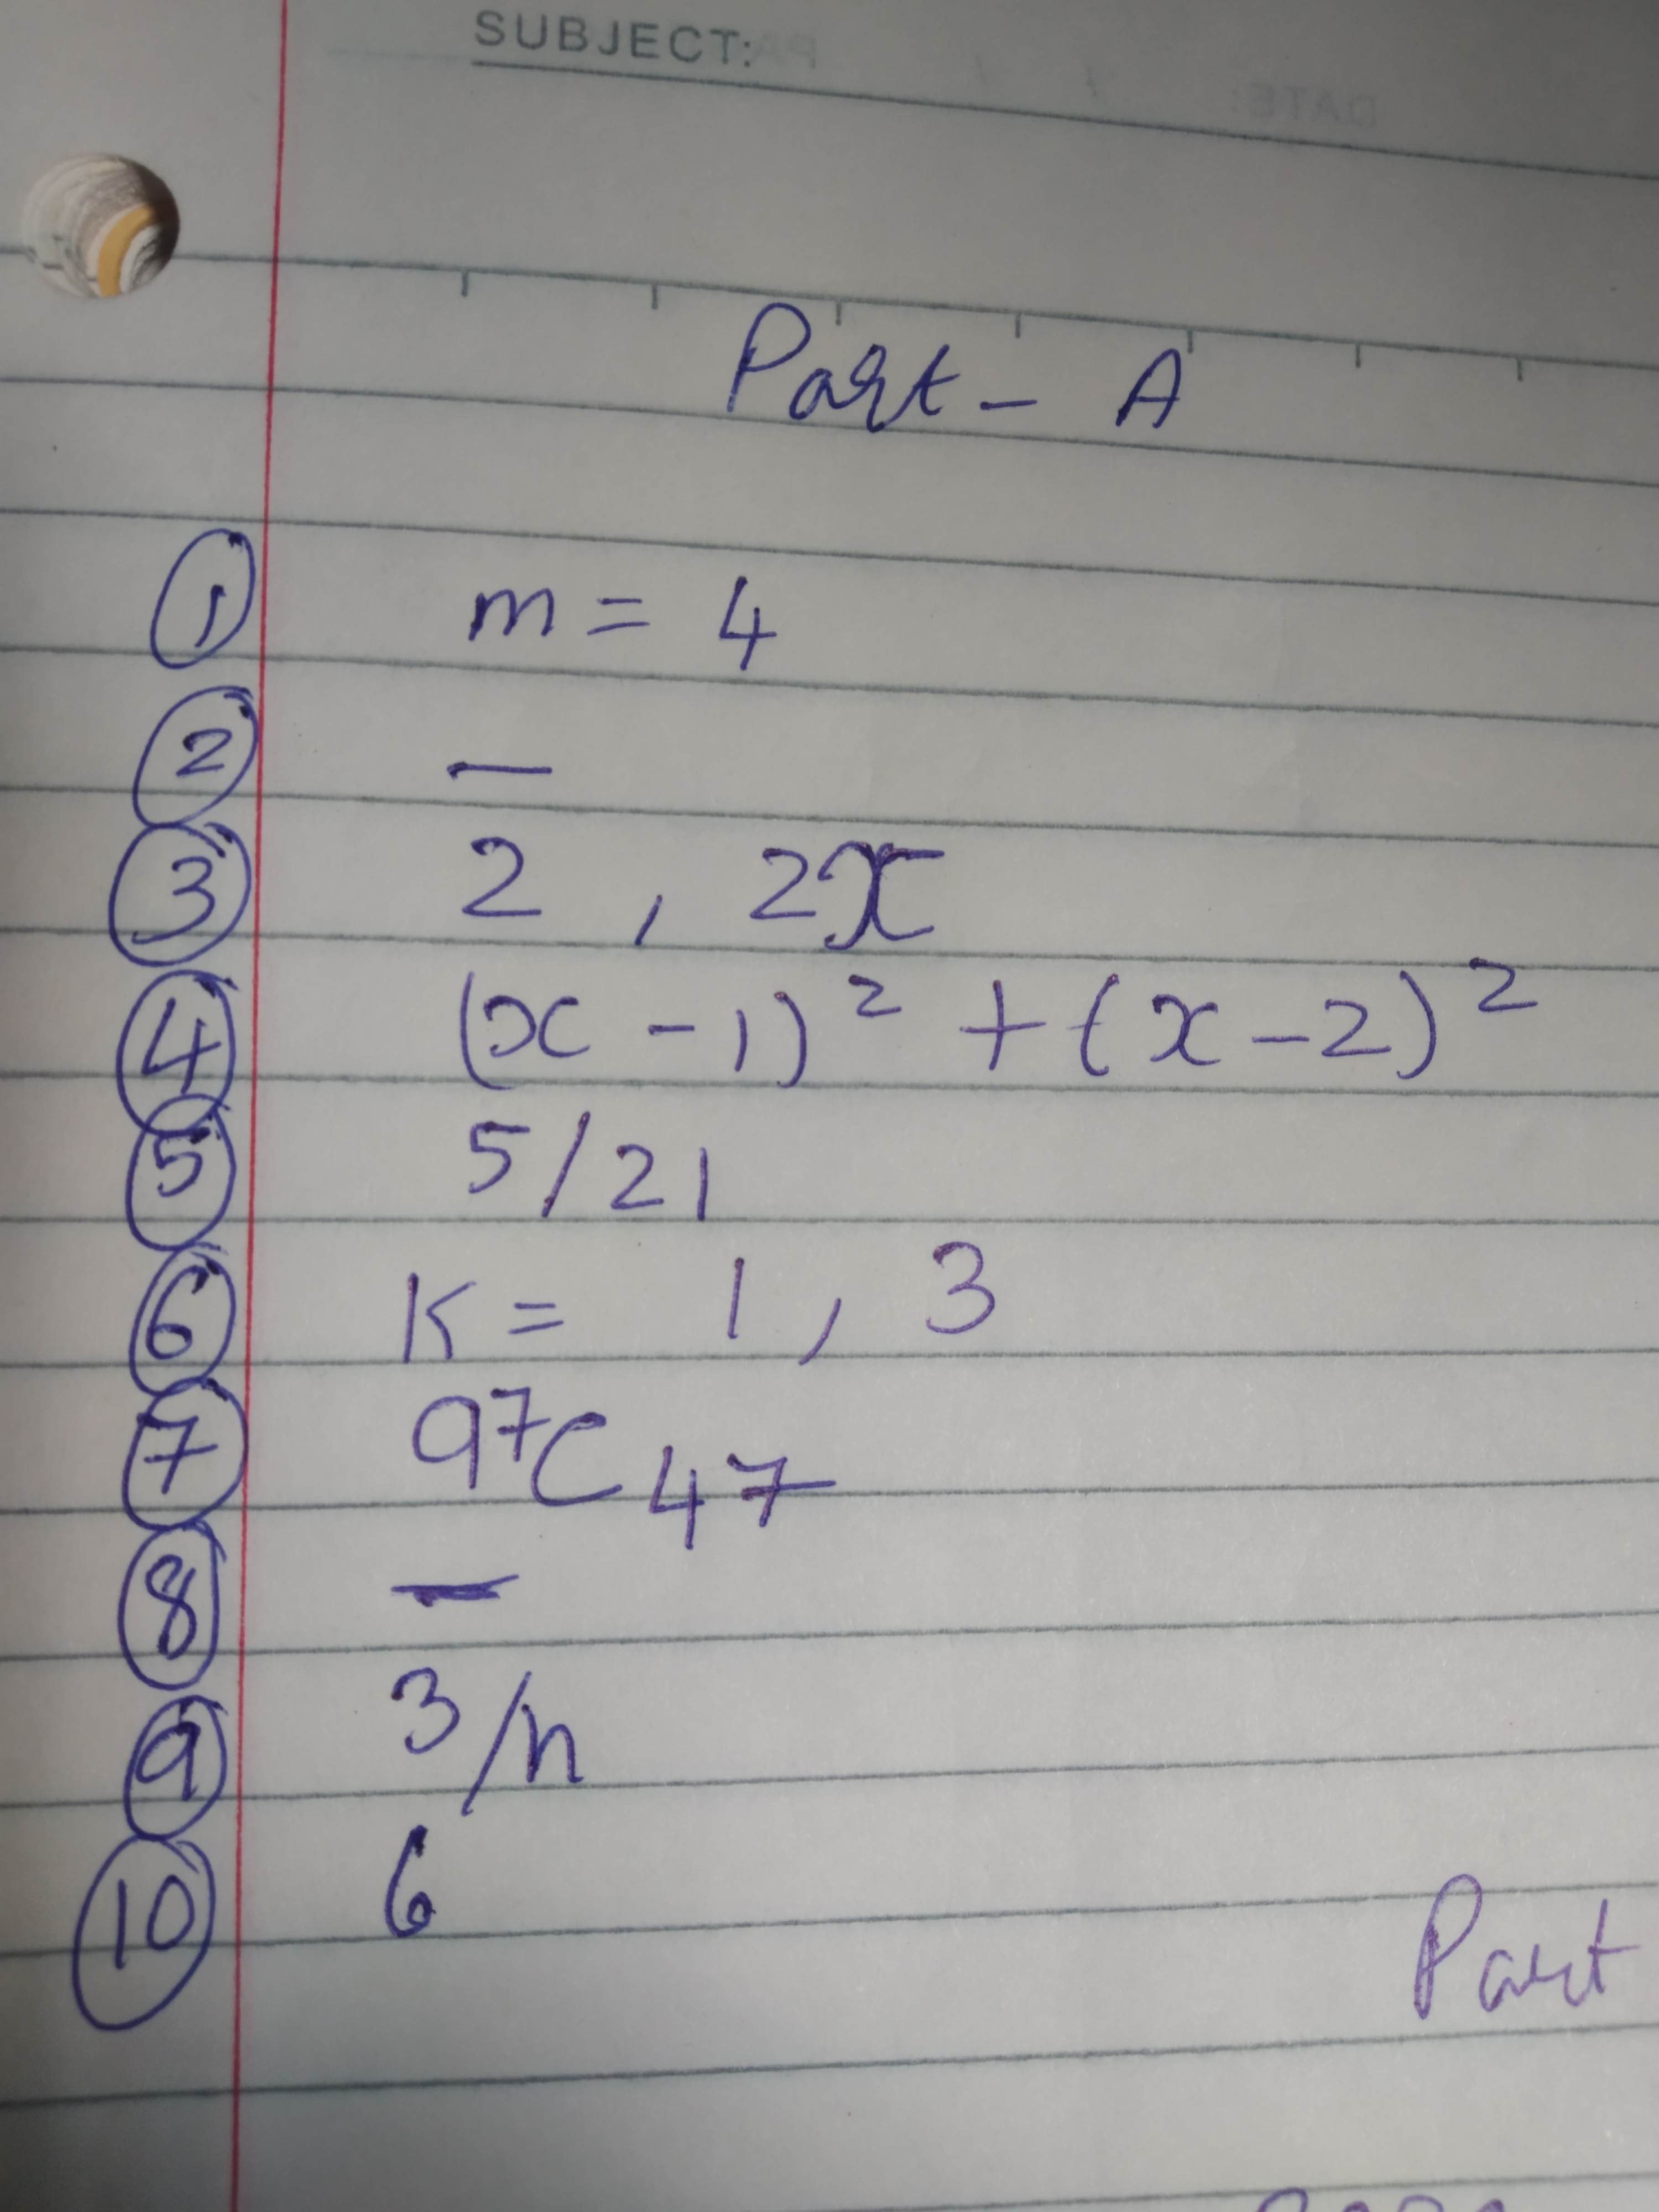 SUBJECT:
Part - A
1 m = 4
2 —
3 2 , 2x
4 (x - 1)² + (x - 2)²
5 5/21
6 K = 1 , 3
7 ⁹⁷C₄₇
8 —
9 3/n
10 6
Part